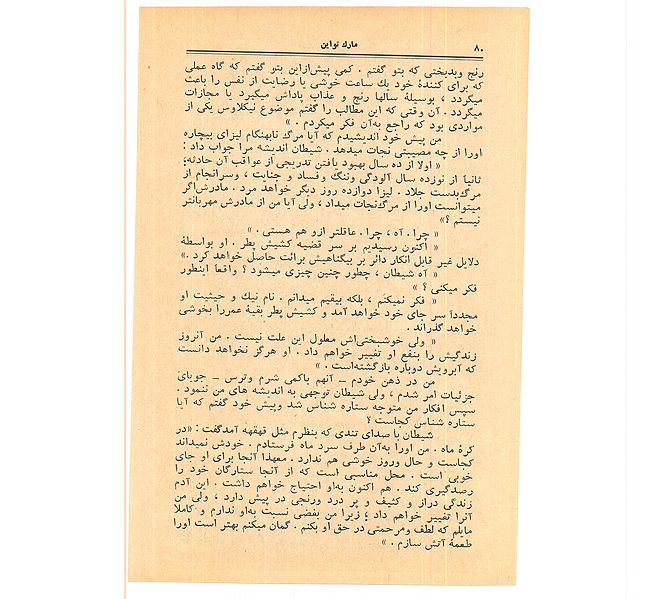 ۸۰
مارك تواین
رنج وبدبختی که بتو گفتم . کمی پیش‌ازاین بتو گفتم که گاه عملی
که برای کنندهٔ خود یك ساعت خوشی یا رضایت از نفس را باعث
میگردد ، بوسیلهٔ سالها رنج و عذاب پاداش میگیرد یا مجازات
میگردد . آن وقتی که این مطالب را گفتم موضوع نیکلاوس یکی از
مواردی بود که راجع به‌آن فکر میکردم . »
من پیش خود اندیشیدم که آیا مرگ نابهنگام لیزای بیچاره
اورا از چه مصیبتی نجات میدهد . شیطان اندیشه مرا جواب داد :
« اولا از ده سال بهبود یافتن تدریجی از عواقب آن حادثه؛
ثانیاً از نوزده سال آلودگی وننگ وفساد و جنایت ، وسرانجام از
مرگ‌بدست جلاد . لیزا دوازده روز دیگر خواهد مرد . مادرش‌اگر
میتوانست اورا از مرگ‌نجات میداد ، ولی آیا من از مادرش مهربانتر
نیستم ؟»
« چرا . آه ، چرا . عاقلتر ازو هم هستی . »
« اکنون رسیدیم بر سر قضیه کشیش پطر . او بواسطهٔ
دلایل غیر قابل انکار دائر بر بیگناهیش برائت حاصل خواهد کرد .»
« آه شیطان ، چطور چنین چیزی میشود ؟ واقعاً اینطور
فکر میکنی ؟ »
« فکر نمیکنم ، بلکه بیقیم میدانم . نام نیك و حیثیت او
مجدداً سر جای خود خواهد آمد و کشیش پطر بقیهٔ عمررا بخوشی
خواهد گذراند .
« ولی خوشبختی‌اش معلول این علت نیست . من آنروز
زندگیش را بنفع او تغییر خواهم داد . او هرگز نخواهد دانست
که آبرویش دوباره بازگشته‌است . »
من در ذهن خودم ــ آنهم باکمی شرم وترس ــ جویای
جزئیات امر شدم ، ولی شیطان توجهی به اندیشه های من ننمود .
سپس افکار من متوجه ستاره شناس شد وپیش خود گفتم که آیا
ستاره شناس کجاست ؟
شیطان با صدای تندی که بنظرم مثل قهقهه آمدگفت : «در
کرهٔ ماه . من اورا به‌آن طرف سرد ماه فرستادم . خودش نمیداند
کجاست و حال وروز خوشی هم ندارد . معهذا آنجا برای او جای
خوبی است . محل مناسبی است که از آنجا ستارگان خود را
رصدگیری کند . هم اکنون به‌او احتیاج خواهم داشت . این آدم
زندگی دراز و کثیف و پر درد ورنجی در پیش دارد ، ولی من
آنرا تغییر خواهم داد ؛ زیرا من بغضی نسبت به‌او ندارم و کاملا
مایلم که لطف ومرحمتی در حق او بکنم . گمان میکنم بهتر است اورا
طعمهٔ آتش سازم . »